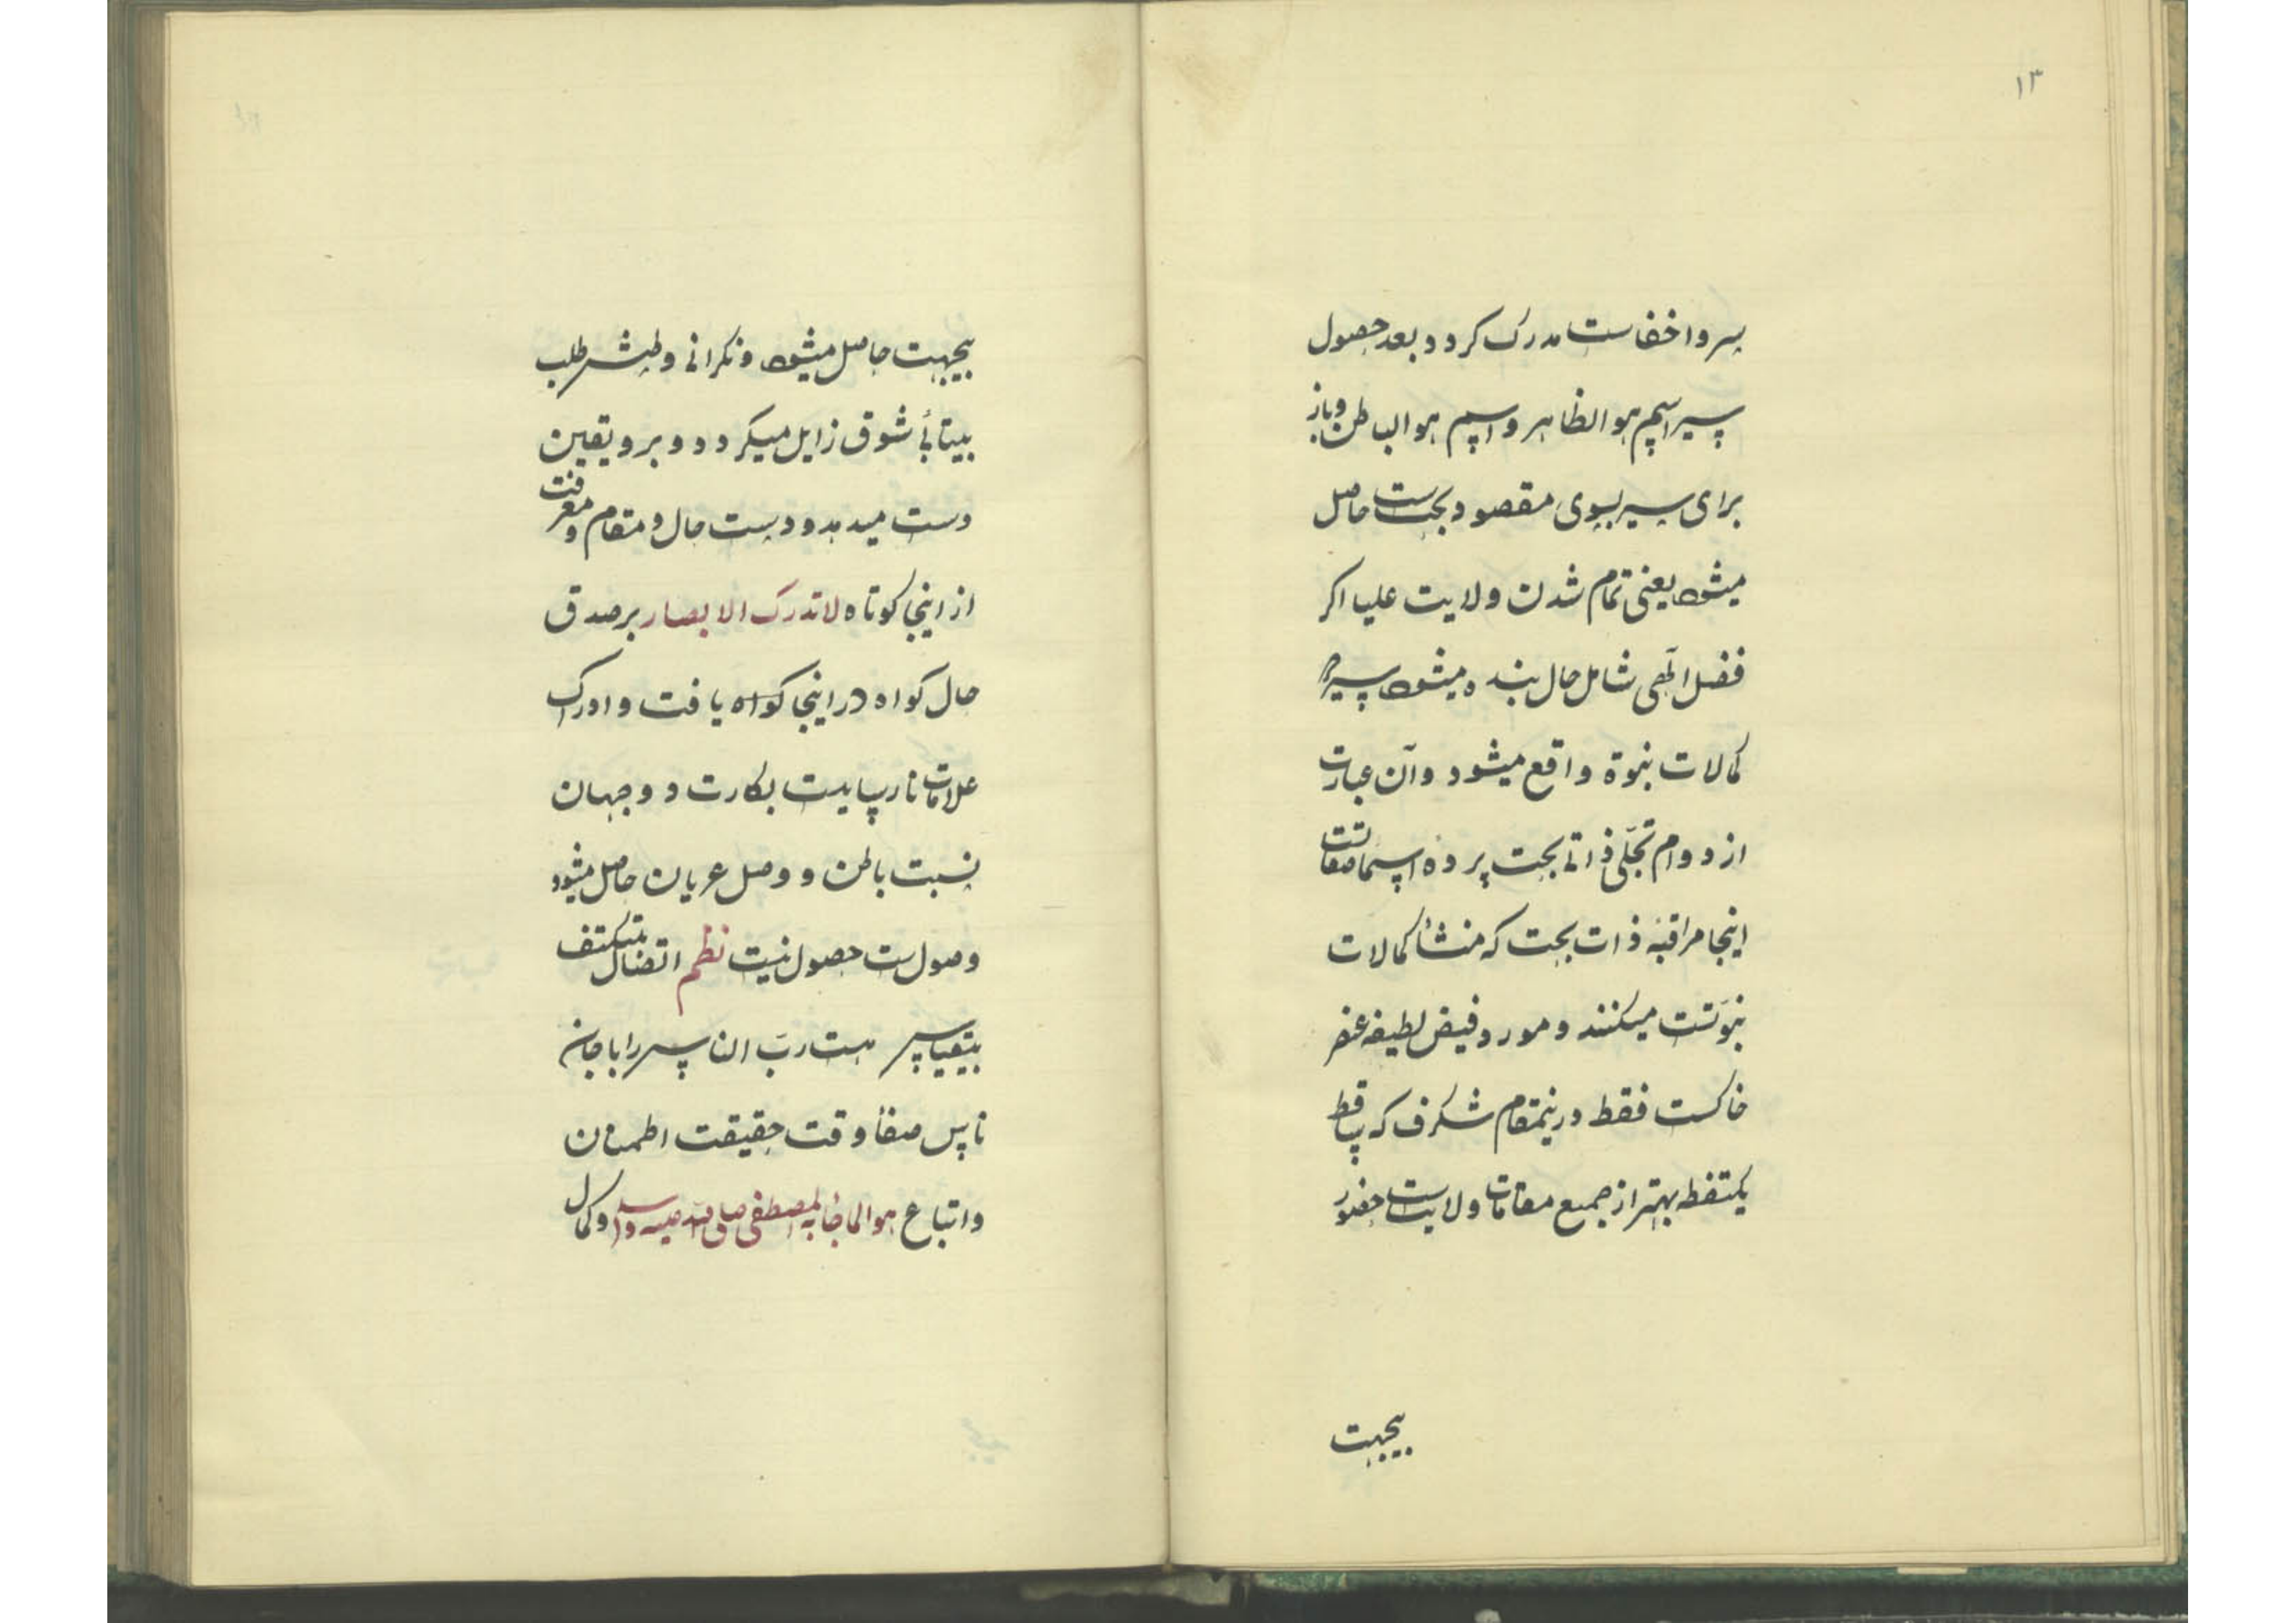 ۱۳
سر و اخفاست مدرک کردد بعد حصول
سیر اسم هو الظاهر و اسم هو الباطن و باز
برای سیر بسوی مقصود بحت است حاصل
میشود یعنی تمام شدن ولایت علیا اکر
فضل الٓهی شامل حال بنده میشود سیر در
کمالات نبوة واقع میشود و آن عبارت
از دوام تجلّی ذاتی بحت پرده اسما صفاتست
اینجا مراقبهٔ ذات بحت که منشأ کمالات
نبوّتست میکنند و مورد فیض لطیفه عنصر
خاکست فقط درینمقام شکرف که یقط
یکنقطه بهتر از جمیع مقامات ولایت است حضور
بیجهت
بیجهت حاصل میشود و نکرانی و طپش طلب
بیتابیٔ شوق زایل میکردد و برو یقین
دست میدهد و دست حال و مقام و معرفت
از اینجا کوتاه لا تدرک الابصار بر صدق
حال کواه در اینجا کواه یافت و ادراک
علامات نارسایست بکارت دو جهان
نسبت باطن و وصل عریان حاصل میشود
وصول است حصول نیست نظم اتصال بتکتف
بیقیاس هست ربّ الناس را با جان
ناس صفأ وقت حقیقت اطمنان
و اتباع هوا لما جا به المصطفی صلی الله علیه وسلم و کمال